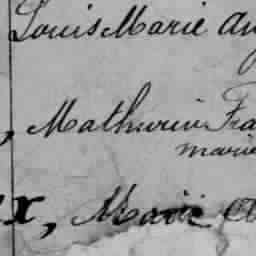 Louis Marie Au
, Mathurin Fra
marie
x, Marie A